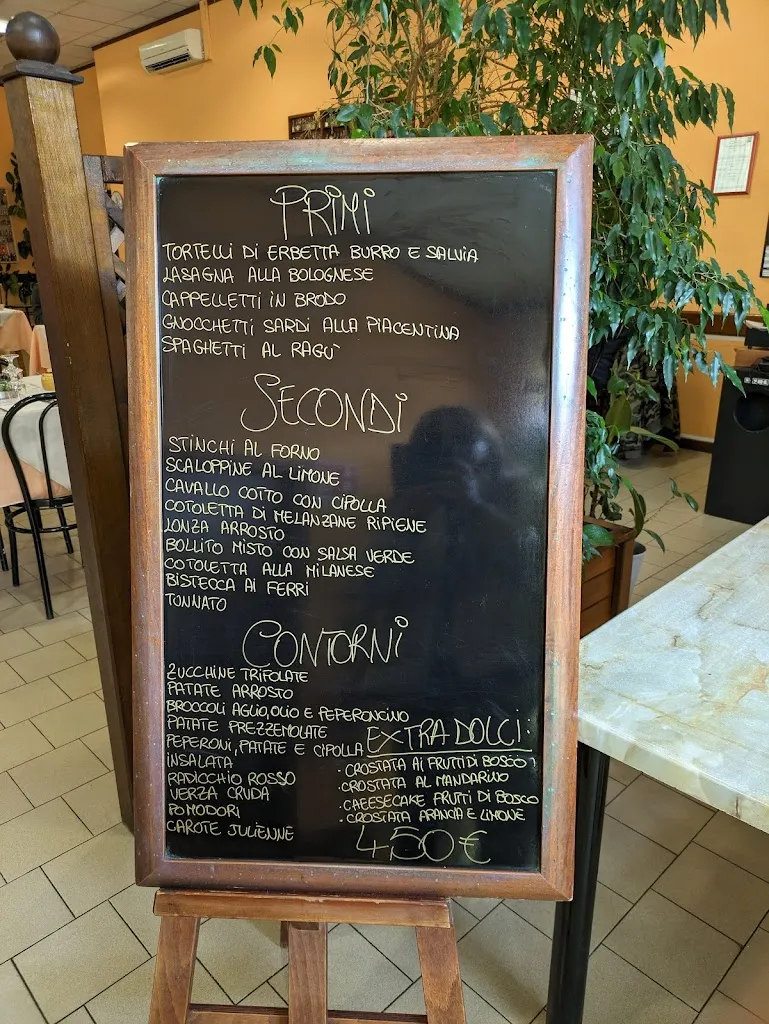 PRIMI
TORTELLI DI ERBETTA BURRO E SALVIA
LASAGNA ALLA BOLOGNESE
CAPPELLETTI IN BRODO
GNOCCHETTI SARDI ALLA PIACENTINA
SPAGHETTI AL RAGU'
SECONDI
STINCHI AL FORNO
SCALOPPINE AL LIMONE
CAVALLO COTTO CON CIPOLLA
COTOLETTA DI MELANZANE RIPIENE
LONZA ARROSTO
BOLLITO MISTO CON SALSA VERDE
COTOLETTA ALLA MILANESE
BISTECCA AI FERRI
TONNATO
CONTORNI
ZUCCHINE TRIFOLATE
PATATE ARROSTO
BROCCOLI AGLIO, OLIO E PEPERONCINO
PATATE PREZZEMOLATE
PEPERONI, PATATE E CIPOLLA
INSALATA
RADICCHIO ROSSO
VERZA CRUDA
POMODORI
CAROTE JULIENNE
EXTRA DOLCI:
· CROSTATA AI FRUTTI DI BOSCO
· CROSTATA AL MANDARINO
· CAEESECAKE FRUTTI DI BOSCO
· CROSTATA ARANCIA E LIMONE
4,50 €